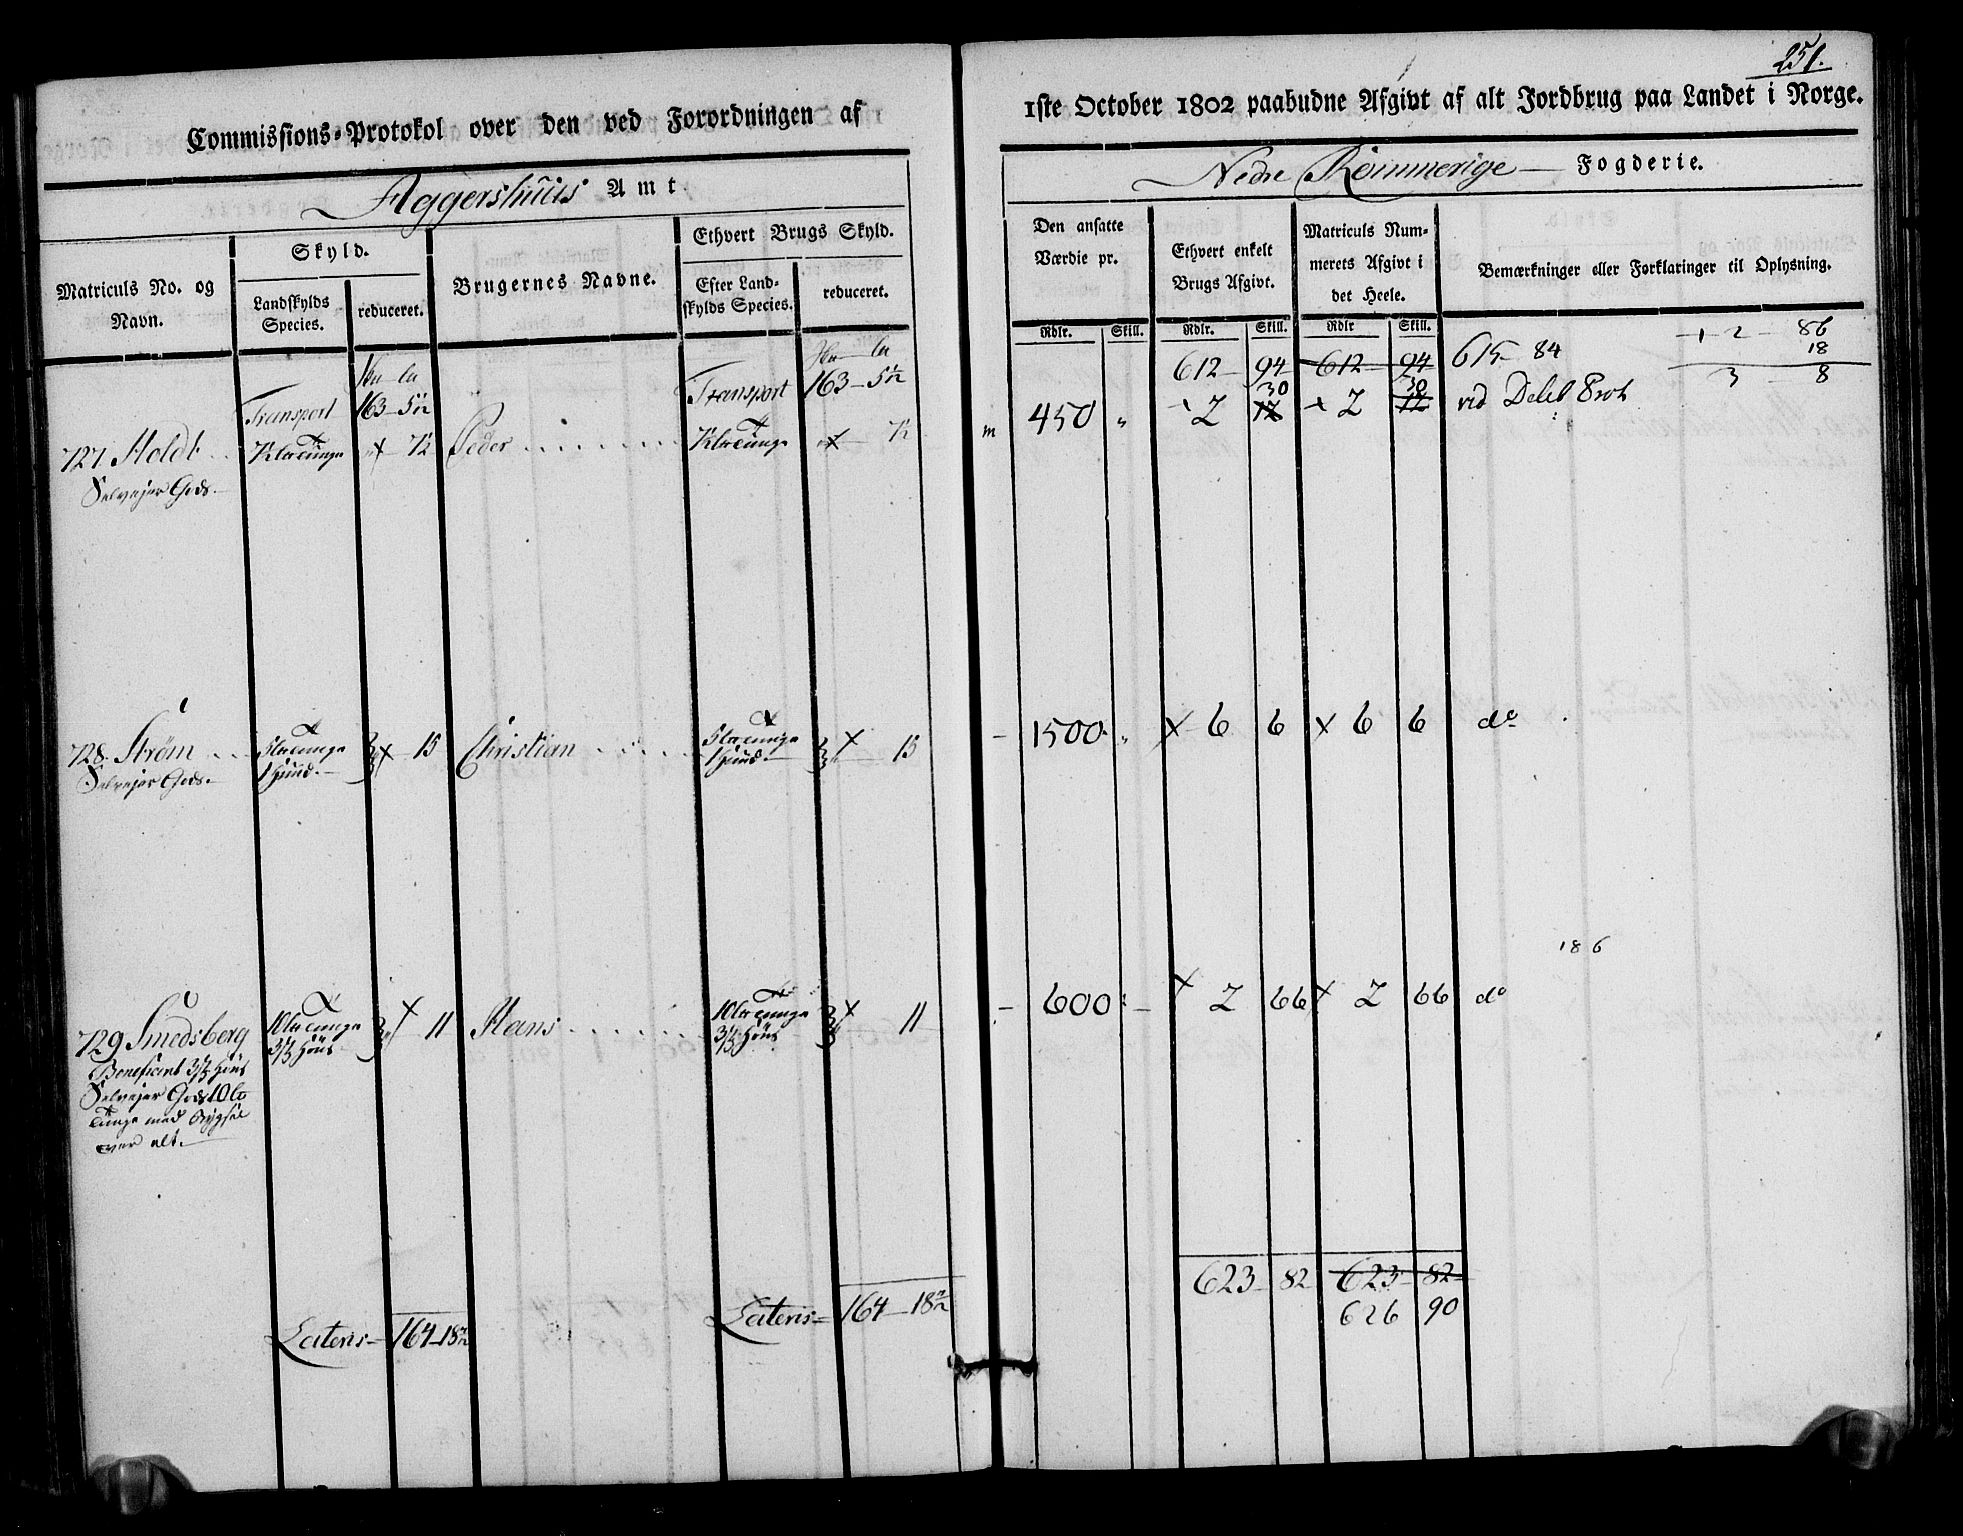 251.
Commissions-Protokol over den ved Forordningen af
1ste October 1802 paabudne Afgivt af alt Jordbrug paa Landet i Norge.
Aggershuus Amt
Nedre Romerige Fogderie.
Matriculs No. og Navn.
Skyld.
Landskylds Species.
reduceret.
Brugernes Navne.
Ethvert Brugs Skyld.
Efter Landskylds Species.
reduceret.
Den ansatte Værdie pr.
Rdlr. Skill.
Ethvert enkelt Brugs Afgivt.
Rdlr. Skill.
Matriculs Nummerets Afgivt i det Heele.
Rdlr Skill.
Bemærkninger eller Forklaringer til Oplysning.
Transport 163-5½ Transport 163-5½ 612 94 612 94 615 84
1 2 86
18
3 8
727. Holdt Peder 450 2 30 2 30 vid Delib Prot
Selvejer Gods
728. Strøm 15 Christian 15 1500 6 6 6 6 do
Selvejer Gods
186
729 Smedsberg 11 Hans 11 600 2 66 2 66 do
Beneficeret
Selvejer Gods
med Bygsel
over alt
623 82 623 82
626 90
Lateris 164-18½ Lateris 164-18½